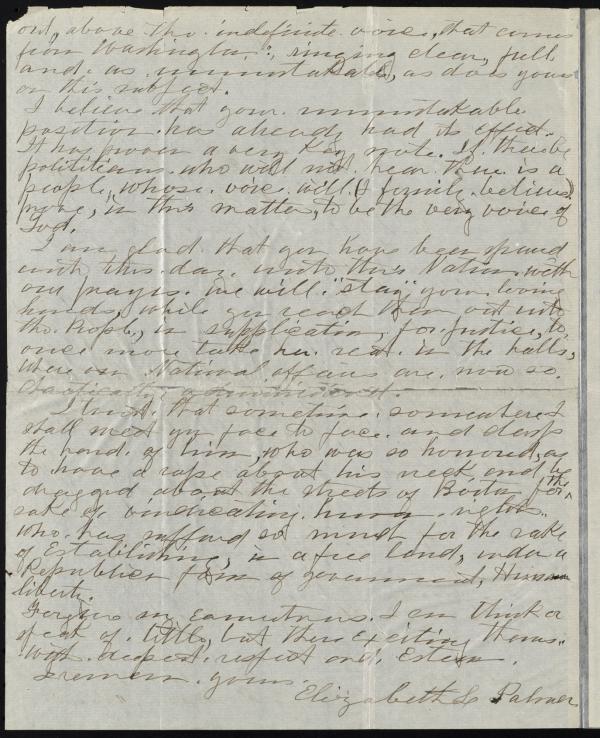 out, above the indefinite voice, that comes
from Washington: ringing clear, full
and as unmistakable, as does yours
on this subject.
I believe that your unmistakable
position has already had its effect.
It has proven a very Key note. If there be
polititians who will not hear there is a
people, whose voice will I firmly believe
prove, in this matter, to be the very voice of
God.
I am glad that you have been spared
until this day unto this Nation with
our prayers we will "stay" your loving
hands, while you reach them out unto
the People, in supplication, for Justice, to
once more take her seat in the halls,
where our National affairs are now so
chaotically administered.
I trust that sometime somewhere I
shall meet you face to face and clasp
the hand of him, who was so honored, as
to have a rope about his neck and be
dragged about the streets of Boston for the
sake of vindicating human rights
who has suffered so much for the sake
of Establishing, in a free land, under a
Republican form of government, Human
liberty.
Forgive my earnestness. I can think or
speak of little, but these exciting themes.
With deepest respect and Esteem
I remain yours.
Elizabeth L Palmer